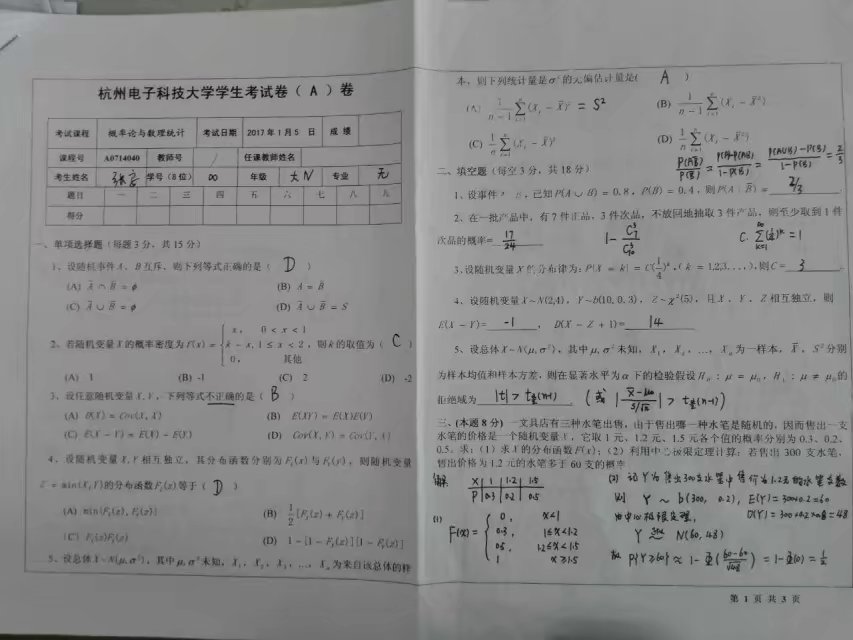 杭州电子科技大学学生考试卷（ A ）卷
考试课程 概率论与数理统计 考试日期 2017年1月5 日 成 绩
课程号 A0714040 教师号 任课教师姓名
考生姓名 学号（8位） 00 年级 大N 专业 无
题目 一 二 三 四 五 六 七 八 九
得分
一、单项选择题（每题3分，共15分）
1、设随机事件A、B互斥，则下列等式正确的是（ D ）
(A) Ā∩B̄=ϕ (B) A=B̄
(C) Ā∪B̄=ϕ (D) Ā∪B̄=S
2、若随机变量X的概率密度为f(x)={ x, 0<x<1
k-x, 1≤x<2 ，则k的取值为（ C ）
0, 其他
(A) 1 (B) -1 (C) 2 (D) -2
3、设任意随机变量X,Y，下列等式不正确的是（ B ）
(A) D(X)=Cov(X,X) (B) E(XY)=E(X)E(Y)
(C) E(X-Y)=E(X)-E(Y) (D) Cov(X,Y)=Cov(Y,X)
4、设随机变量X,Y相互独立，其分布函数分别为F₁(x)与F₂(y)，则随机变量
Z=min(X,Y)的分布函数F_Z(z)等于（ D ）
(A) min{F₁(z),F₂(z)} (B) 1/2[F₁(z)+F₂(z)]
(C) F₁(z)F₂(z) (D) 1-[1-F₁(z)][1-F₂(z)]
5、设总体X~N(μ,σ²)，其中μ,σ²未知，X₁，X₂，X₃，…，Xₙ为来自该总体的样
本，则下列统计量是σ²的无偏估计量是( A )
(A) 1/(n-1) ∑(Xᵢ-X̄)² = S² (B) 1/(n-1) ∑(Xᵢ-X̄²)
(C) 1/n ∑(Xᵢ-X̄)² (D) 1/n ∑(Xᵢ-X̄²)
P(AB̄)/P(B̄) = P(A)-P(AB)/1-P(B) = P(A∪B)-P(B)/1-P(B) = 2/3
二、填空题（每空3分，共18分）
1、设事件A，B，已知P(A∪B)=0.8，P(B)=0.4，则P(A|B̄)= 2/3
2、在一批产品中，有7件正品，3件次品，不放回地抽取3件产品，则至少取到1件
次品的概率= 17/24 1-C₇³/C₁₀³ C·∑(1/4)ᵏ=1
3、设随机变量X的分布律为：P{X=k}=C(1/4)ᵏ，(k=1,2,3,...)，则C= 3
4、设随机变量X~N(2,4)，Y~b(10,0.3)，Z~χ²(5)，且X，Y，Z相互独立，则
E(X-Y)= -1 ，D(X-Z+1)= 14
5、设总体X~N(μ,σ²)，其中μ,σ²未知，X₁，X₂，…，Xₙ为一样本，X̄，S²分别
为样本均值和样本方差，则在显著水平为α下的检验假设H₀：μ=μ₀，H₁：μ≠μ₀的
拒绝域为 |t|>t_{α/2}(n-1) （或 |X̄-μ₀/(S/√n)|>t_{α/2}(n-1)）
三、（本题8分）一文具店有三种水笔出售，由于售出哪一种水笔是随机的，因而售出一支
水笔的价格是一个随机变量X，它取1元、1.2元、1.5元各个值的概率分别为0.3、0.2、
0.5。求：（1）求X的分布函数F(x)；（2）利用中心极限定理计算：若售出300支水笔，
售出价格为1.2元的水笔多于60支的概率
解: X 1 1.2 1.5
P 0.3 0.2 0.5
(1) F(x)={ 0, x<1
0.3, 1≤x<1.2
0.5, 1.2≤x<1.5
1 x≥1.5
(2) 设Y为售出300支水笔中售价为1.2元的水笔支数
则 Y~b(300, 0.2), E(Y)=300×0.2=60
由中心极限定理, D(Y)=300×0.2×0.8=48
Y 近似~ N(60,48)
故 P{Y≥60}≈1-Φ((60-60)/√48)=1-Φ(0)=1/2
第 1 页 共 3 页